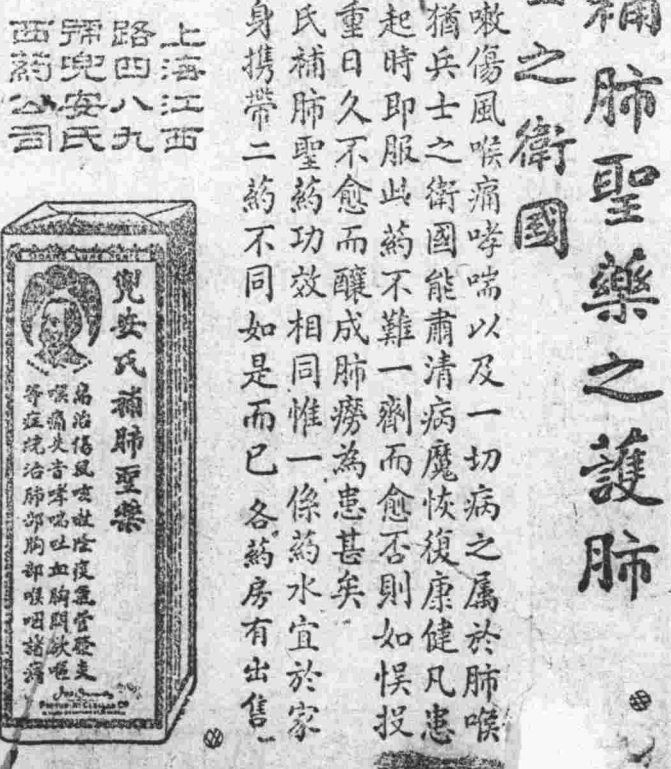 補肺聖藥之護肺
之衛國
嗽傷風喉痛哮喘以及一切病之属於肺喉
猶兵士之衛國能肅清病魔恢復康健凡患
起時即服此藥不難一劑而愈否則如悞投
重日久不愈而釀成肺癆為患甚矣
氏補肺聖藥功效相同惟一係藥水宜於家
身携帶二藥不同如是而已 各藥房有出售
上海江西
路四八九
號兜安氏
西藥公司
兜安氏補肺聖藥
喉痛失音哮喘吐血胸悶欲嘔
等症統治肺部胸部喉咽諸病